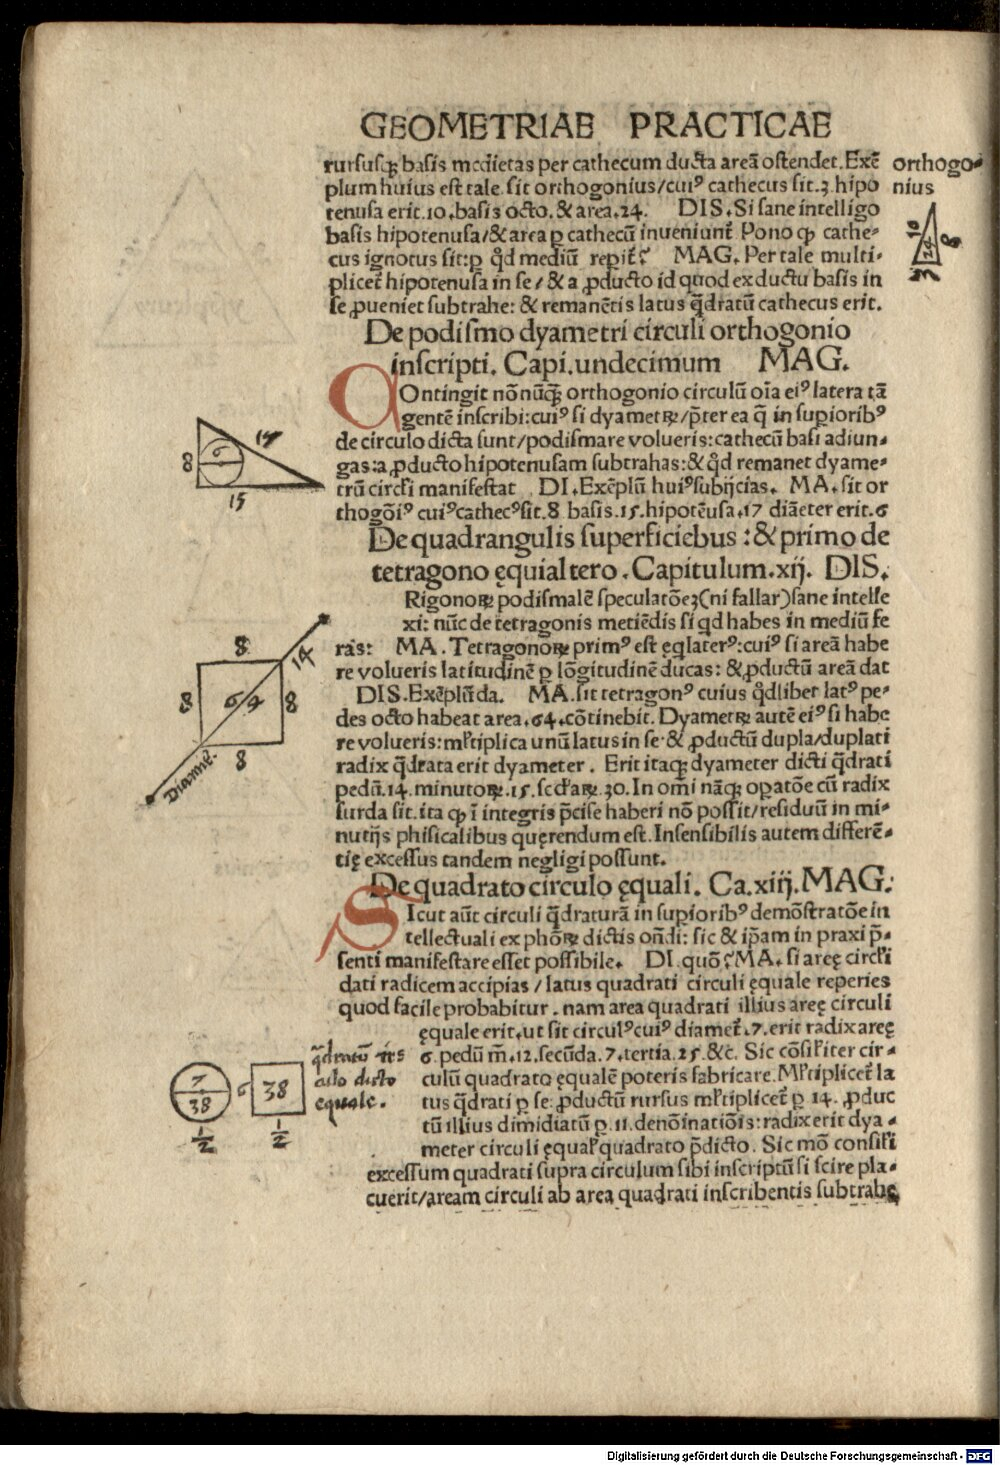 GEOMETRIAE PRACTICAE
rursusqꝫ basis medietas per cathecum ducta areā ostendet. Exē
plum huius est tale. sit orthogonius/cuiꝰ cathecus sit.3. hipo
tenusa erit.10.basis octo.& area.24. DIS. Si sane intelligo
basis hipotenusa/& area ꝑ cathecū inueniunt᷑ Pono ꝙ cathe⸗
cus ignotus sit:ꝑ qd̄ mediū repit᷑? MAG. Per tale multi⸗
plicet᷑ hipotenusa in se/& a ꝓducto id quod ex ductu basis in
se ꝓueniet subtrahe: & remanētis latus q̄dratū cathecus erit.
orthogo⸗
nius
10
24
8
De podismo dyametri circuli orthogonio
inscripti. Capi.undecimum MAG.
Ontingit nōnūqꝫ orthogonio circulū oīa eiꝰ latera tā
gentē inscribi:cuiꝰ si dyametrꝝ/p̄ter ea q̄ in supioribꝰ
de circulo dicta sunt/podismare volueris:cathecū basi adiun⸗
gas:a ꝓducto hipotenusam subtrahas:& qd̄ remanet dyame⸗
trū circl̄i manifestat DI.Exēplū huiꝰ subijcias. MA. sit or
thogōiꝰ cuiꝰ cathecꝰ sit.8 basis.15.hipotēusa.17 diāeter erit.6
8
6
17
15
De quadrangulis superficiebus:& primo de
tetragono ęquialtero.Capitulum.xij. DIS.
Rigonoꝝ podismalē speculatōeʒ(ni fallar)sane intelle
xi: nūc de tetragonis metiēdis si qd habes in mediū fe
ras: MA. Tetragonoꝝ primꝰ est ęqlaterꝰ:cuiꝰ si areā habe
re volueris latitudinē ꝑ lōgitudinē ducas: & ꝓductū areā dat
DIS.Exēplū da. MA. sit tetragonꝰ cuius qd̄libet latꝰ pe⸗
des octo habeat area.64.cōtinebit. Dyametrꝝ autē eiꝰ si habe
re volueris: ml̄tiplica unū latus in se & ꝓductū dupla/duplati
radix q̄drata erit dyameter. Erit itaqꝫ dyameter dicti q̄drati
pedū.14.minutoꝝ.15.secd̄aꝝ.30. In om̄i nāqꝫ opatōe cū radix
surda sit.ita ꝙ ī integris p̄cise haberi nō possit/residuū in mi⸗
nutijs phisicalibus quęrendum est. Insensibilis autem differē⸗
tię excessus tandem negligi possunt.
8
14
8
64
8
8
Diamet᷑.
De quadrato circulo ęquali. Ca.xiij.MAG.
SIcut aūt circuli q̄draturā in supioribꝰ demōstratōe in
tellectuali ex phōꝝ dictis ondi: sic & ip̄am in praxi p̄⸗
senti manifestare esset possibile. DI.quō? MA. si areę circl̄i
dati radicem accipias/latus quadrati circuli ęquale reperies
quod facile probabitur. nam area quadrati illius areę circuli
ęquale erit.ut sit circulꝰ cuiꝰ diamet᷑.7. erit radix areę
6. pedū m̄.12.secūda.7.tertia.25.&c. Sic cōsil̄iter cir⸗
culū quadrato ęqualē poteris fabricare.Ml̄tiplicet᷑ la
tus q̄drati ꝑ se ꝓductū rursus ml̄tiplicet᷑ ꝑ 14. ꝓduc
tū illius dimidiatū ꝑ.11.denōinatiōīs: radix erit dya⸗
meter circuli ęqual̄ quadrato p̄dicto. Sic mō consil̄i
excessum quadrati supra circulum sibi inscriptū si scire pla⸗
cuerit/aream circuli ab area quadrati inscribentis subtrahe
7
38
1/2
6
38
1/2
q̄dratū
culo dicto
equale.
Digitalisierung gefördert durch die Deutsche Forschungsgemeinschaft - DFG